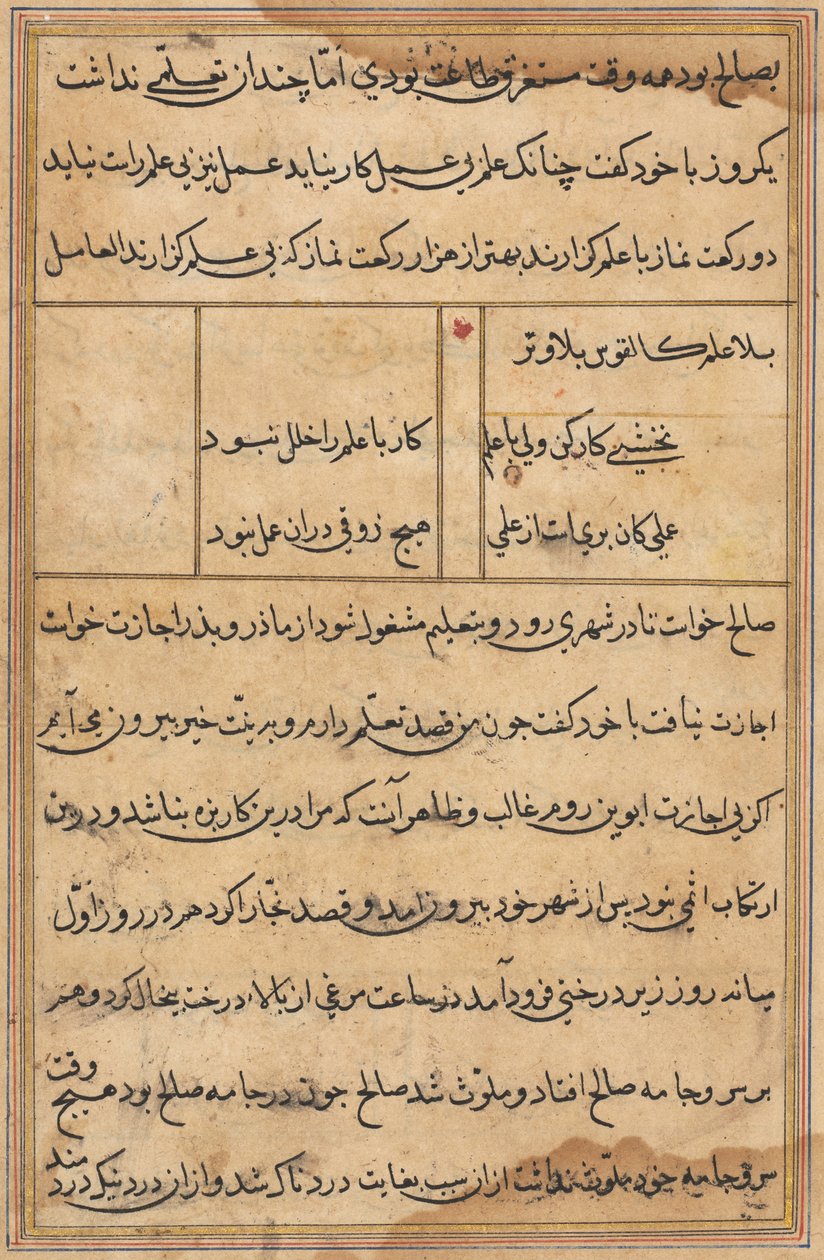 بصالح بود همه وقت مستغرق طاعت بودي اَمّا چندان تعلمّے نداشت
يكروز با خود كفت چنانك علم بي عمل كار نيايد عمل نيز بي علم راست نيايد
دو ركعت نماز با علم كزارند بهتر از هزار ركعت نماز كه بي علم كزارند العامل
بلا علم كالقوس بلا وتر
نخشبے كار كن ولي با علم كار با علم را خلل نبود
علمي كان بري است از علمي هيچ ذوقي دران عمل نبود
صالح خواست تا در شهري رود و بتعليم مشغول شود از ماذر و پذر اجازت خواست
اجازت نيافت با خود كفت جون من قصد تعلّم دارم و بدين نيّت خير بيرون مي آيم
اكر بي اجازت ابوين روم غالب و ظاهر آنست كه مرا درين كار بزه نباشد و درين
ارتكاب اثمي نبود پس از شهر خود بيرون امد و قصد بخارا كرد هم در روز اَوّل
ميانه روز زير درختي فرود آمد در ساعت مرغي از بالاء درخت پيخال كرد و هم
بر سر و جامه صالح افتاد و ملوّث شد صالح جون در جامه صالح بود هيچ وقت
سر و جامه خود ملوّث نداشت از ان سبب بغايت دردناك شد و از ان درد نيك دردمند